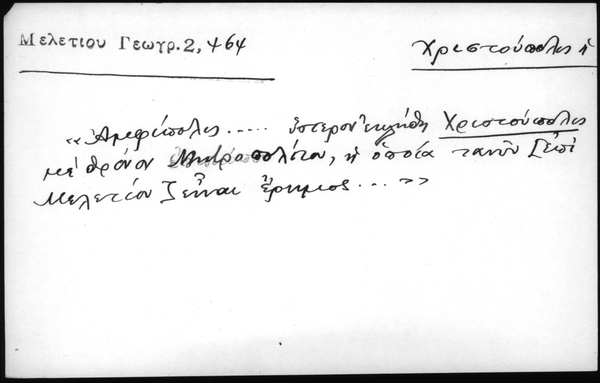 Μελετίου Γεωγρ. 2, 464
Χριστούπολις ἡ
«Ἀμφίπολις..... ὕστερον ἐκλήθη Χριστούπολις
μὲ θρόνον Μητροπολίτου, ἡ ὁποία τανῦν [ἐπὶ
Μελετίου] εἶναι ἔρημος...»